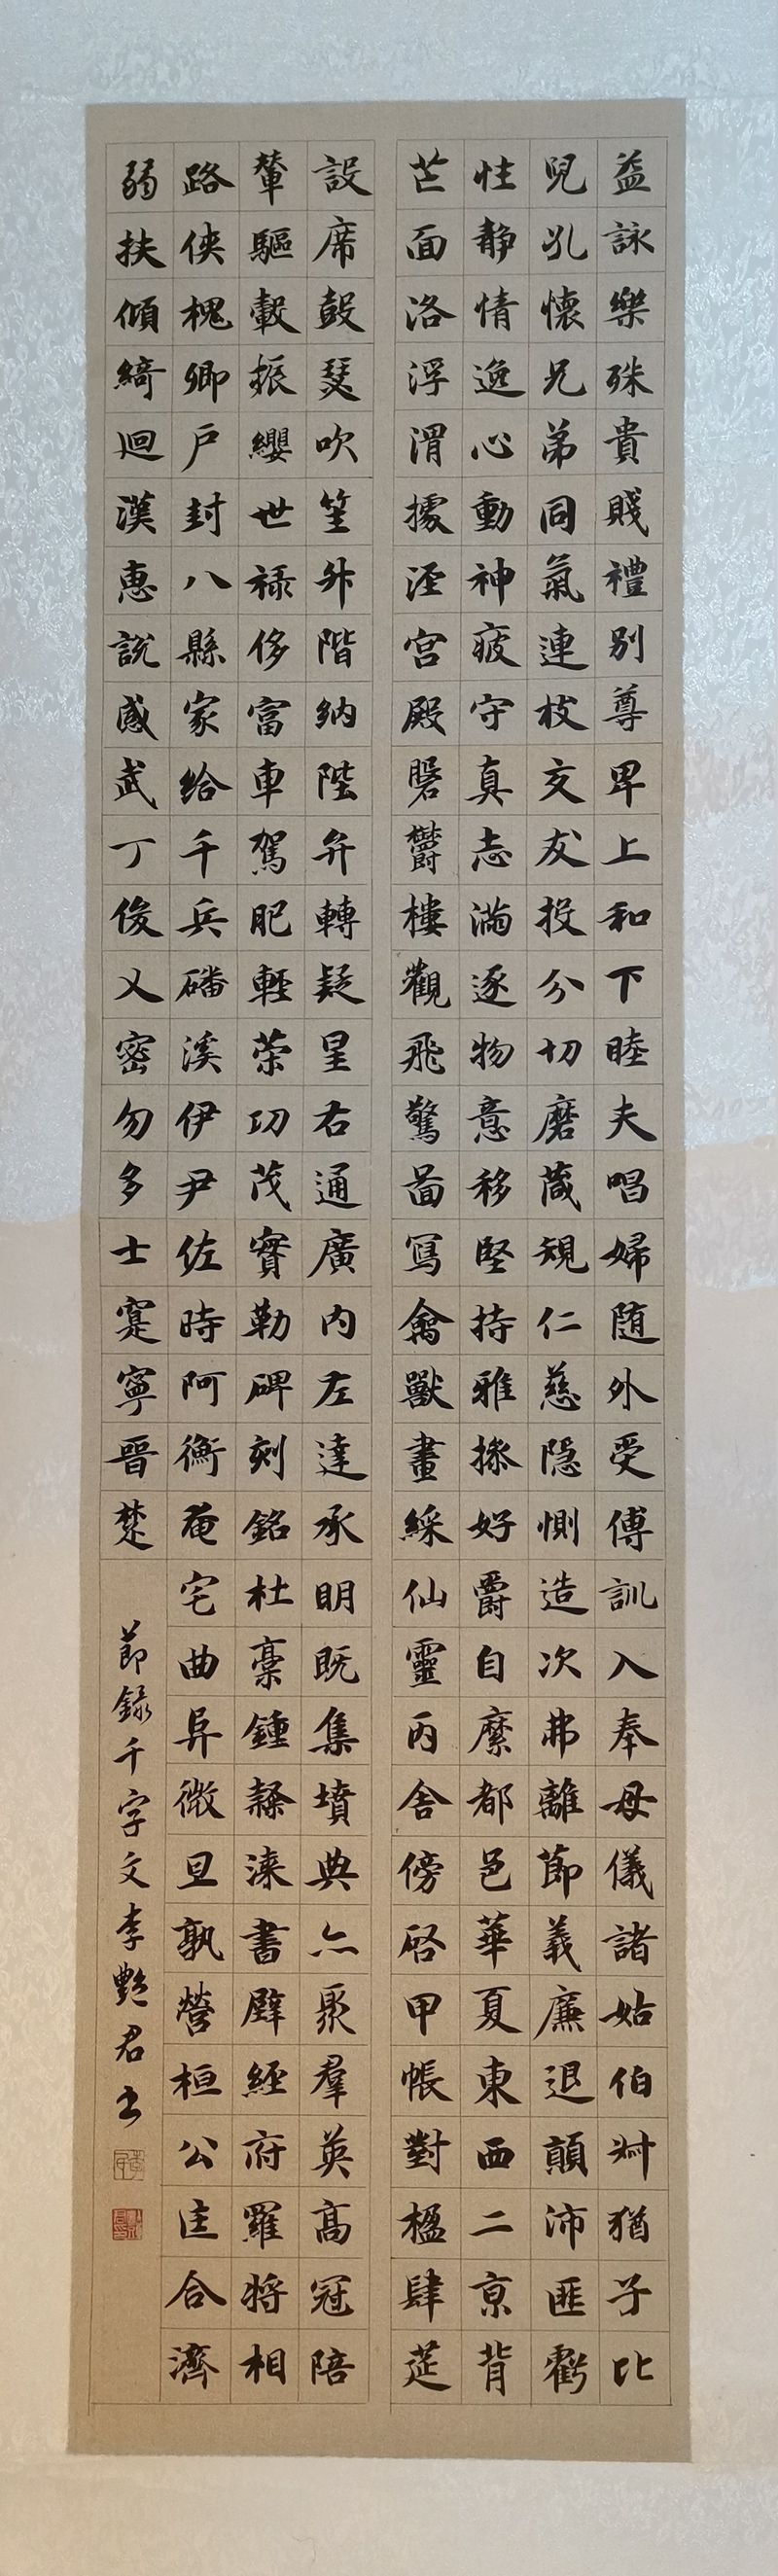 益詠樂殊貴賤禮別尊卑上和下睦夫唱婦随外受傅訓入奉母儀諸姑伯叔猶子比
兒孔懷兄弟同氣連枝交友投分切磨箴規仁慈隱惻造次弗離節義廉退顛沛匪虧
性静情逸心動神疲守真志滿逐物意移堅持雅操好爵自縻都邑華夏東西二京背
芒面洛浮渭據涇宮殿磐鬱樓觀飛驚圖寫禽獸畫綵仙靈丙舍傍啓甲帳對楹肆莚
設席鼓瑟吹笙升階納陛弁轉疑星右通廣内左達承明既集墳典亦聚羣英高冠陪
輦驅轂振纓世禄侈富車駕肥輕策功茂實勒碑刻銘杜稾鍾隸漆書壁經府羅將相
路俠槐卿户封八縣家給千兵磻溪伊尹佐時阿衡奄宅曲阜微旦孰營桓公匡合濟
弱扶傾綺迴漢惠說感武丁俊乂密勿多士寔寧晉楚
節録千字文李艷君书